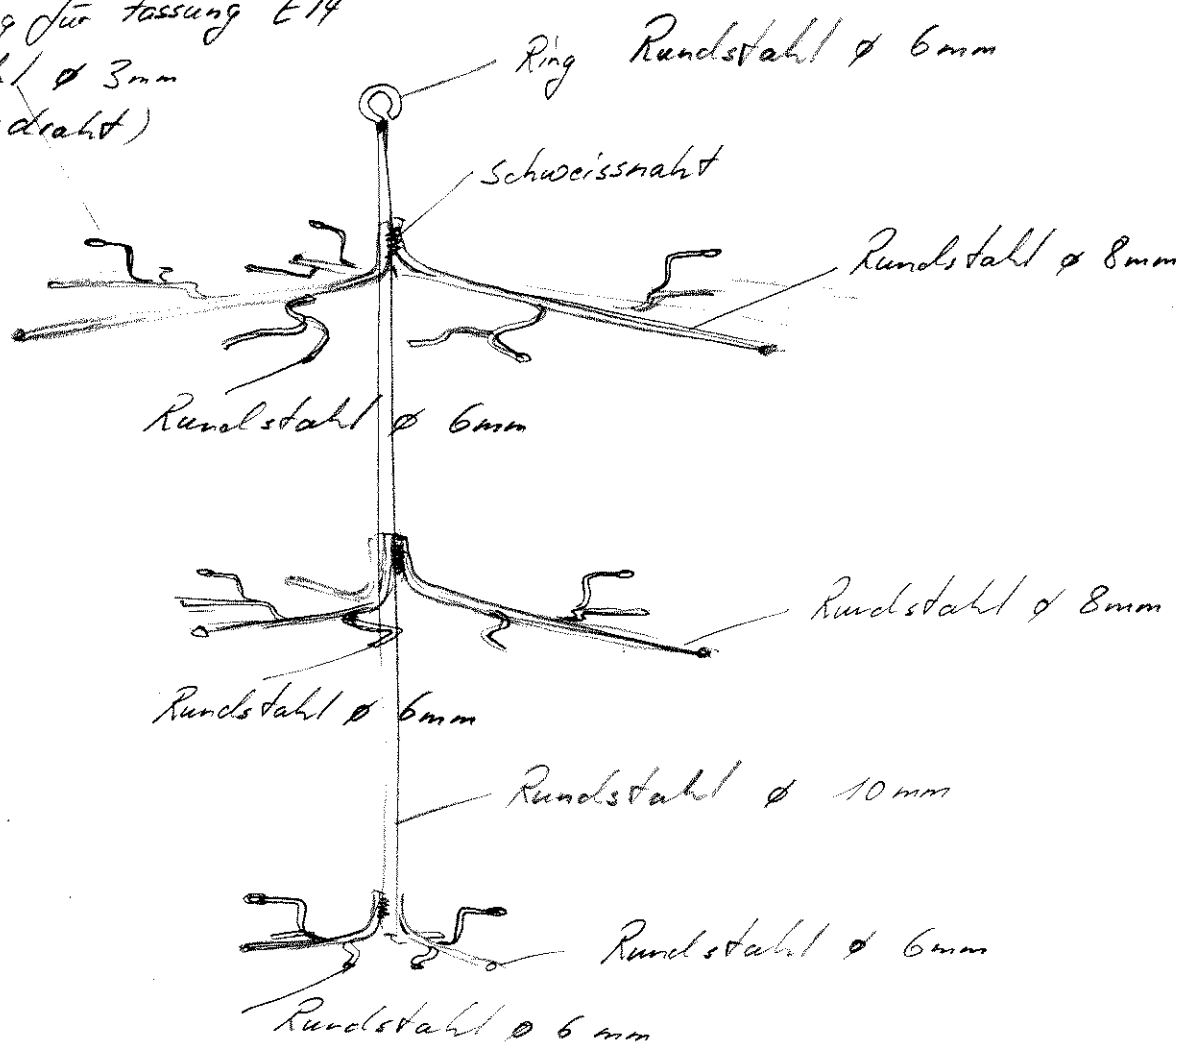 für Fassung E14
Ring Rundstahl ø 6mm
ø 3mm
draht)
Schweissnaht
Rundstahl ø 8mm
Rundstahl ø 6mm
Rundstahl ø 8mm
Rundstahl ø 6mm
Rundstahl ø 10mm
Rundstahl ø 6mm
Rundstahl ø 6mm